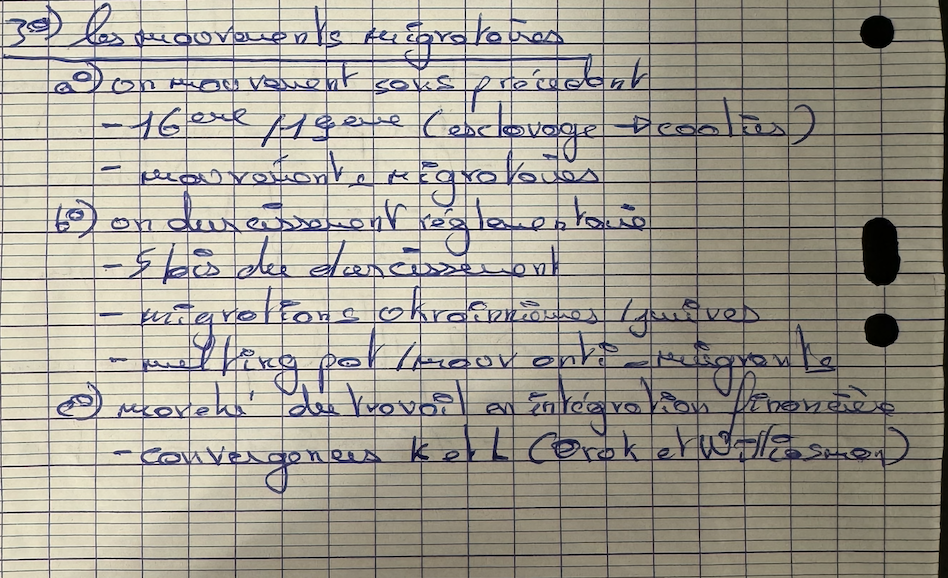 3°) les mouvements migratoires
a°) un mouvement sans précédent
- 16ème / 19ème (esclavage → coolies)
- mouvements migratoires
b°) un durcissement réglementaire
- 5 lois du durcissement
- migrations ukrainiennes / juives
- melting pot / mouv anti-migrants
c°) marché du travail en intégration financière
- convergences K et L (Orok et Williasmon)